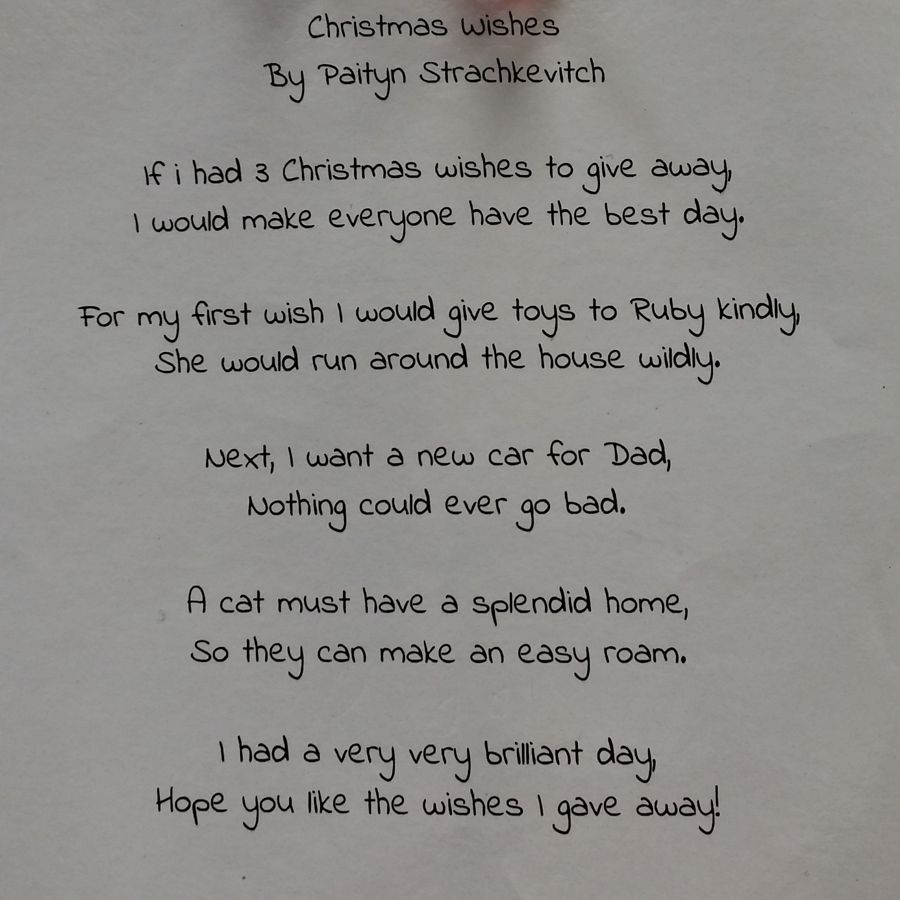 Christmas wishes
By Paityn Strachkevitch
If i had 3 Christmas wishes to give away,
I would make everyone have the best day.
For my first wish I would give toys to Ruby kindly,
She would run around the house wildly.
Next, I want a new car for Dad,
Nothing could ever go bad.
A cat must have a splendid home,
So they can make an easy roam.
I had a very very brilliant day,
Hope you like the wishes I gave away!